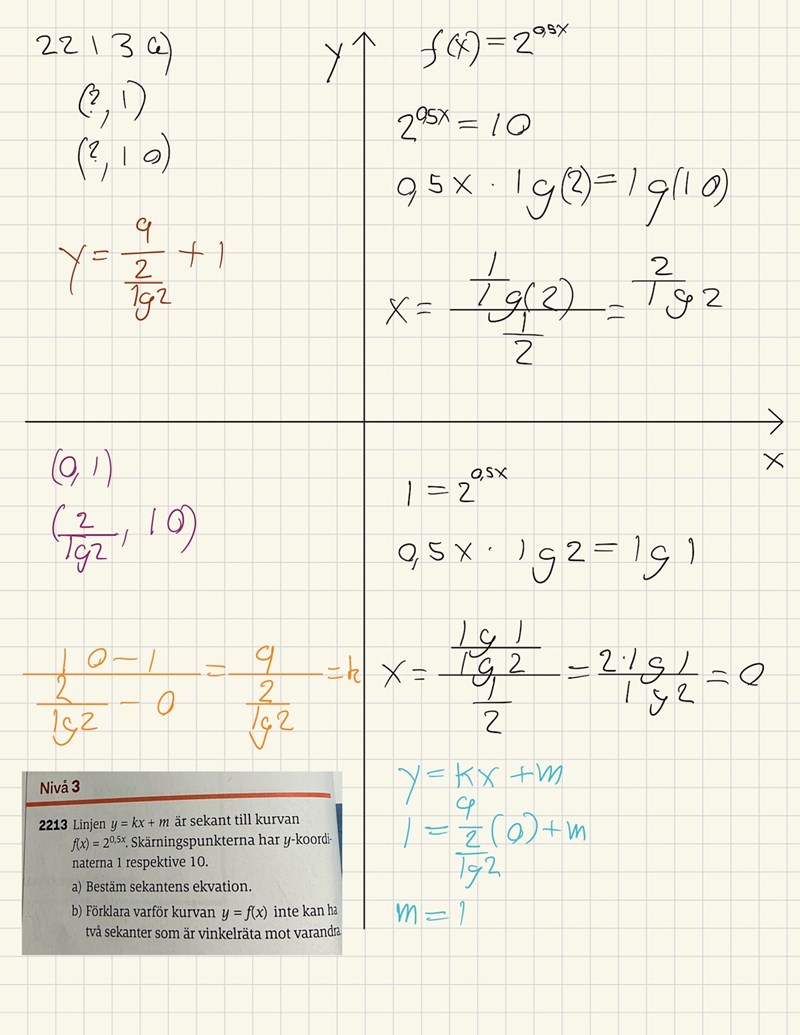 2213 a)
(?, 1)
(?, 10)
y = 9/(2/lg2) + 1
y
f(x) = 2^0,5x
2^0,5x = 10
0,5x · lg(2) = lg(10)
x = (1/lg(2))/(1/2) = 2/lg2
x
(0, 1)
(2/lg2, 10)
(10-1)/(2/lg2 - 0) = 9/(2/lg2) = k
1 = 2^0,5x
0,5x · lg2 = lg1
x = (lg1/lg2)/(1/2) = 2·lg1/lg2 = 0
y = kx + m
1 = 9/(2/lg2) (0) + m
m = 1
Nivå 3
2213 Linjen y = kx + m är sekant till kurvan
f(x) = 2^0,5x. Skärningspunkterna har y-koordi-
naterna 1 respektive 10.
a) Bestäm sekantens ekvation.
b) Förklara varför kurvan y = f(x) inte kan ha
två sekanter som är vinkelräta mot varandra